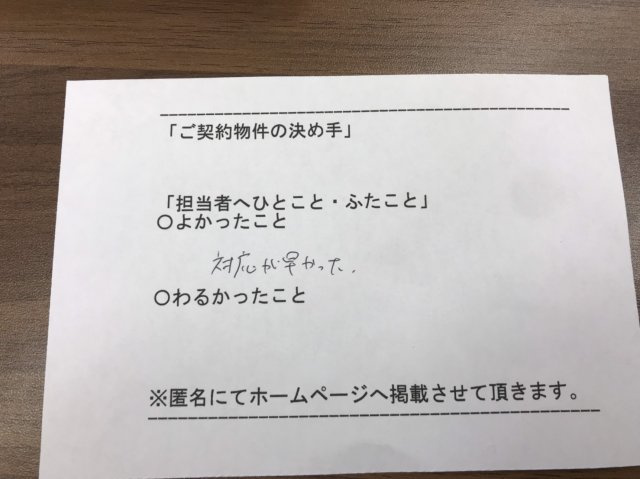 「ご契約物件の決め手」
「担当者へひとこと・ふたこと」
○よかったこと
対応が早かった.
○わるかったこと
※匿名にてホームページへ掲載させて頂きます。